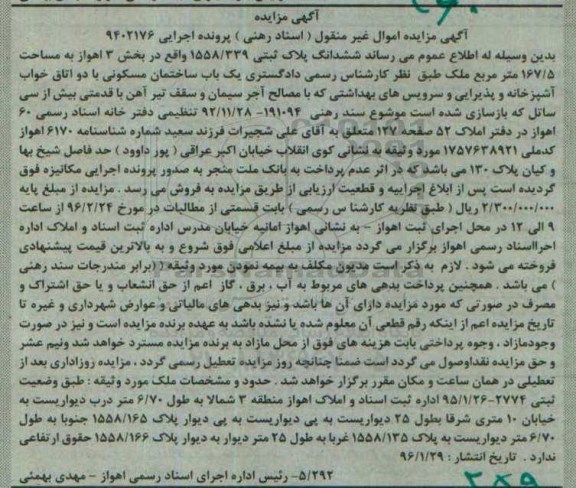 آگهی مزایده
آگهی مزایده اموال غیر منقول ( اسناد رهنی ) پرونده اجرایی ۹۴۰۲۱۷۶
بدین وسیله له اطلاع عموم می رساند ششدانگ پلاک ثبتی ۱۵۵۸/۳۳۹ واقع در بخش ۳ اهواز به مساحت
۱۶۷/۵ متر مربع ملک طبق نظر کارشناس رسمی دادگستری یک باب ساختمان مسکونی با دو اتاق خواب
آشپزخانه و پذیرایی و سرویس های بهداشتی که با مصالح آجر سیمان و سقف تیر آهن با قدمتی بیش از سی
سال که بازسازی شده است موضوع سند رهنی ۱۹۱۰۹۴- ۹۲/۱۱/۲۸ تنظیمی دفتر خانه اسناد رسمی ۶۰
اهواز در دفتر املاک ۵۲ صفحه ۱۲۷ متعلق به آقای علی شجیرات فرزند سعید شماره شناسنامه ۶۱۷۰ اهواز
کدملی ۱۷۵۷۶۳۸۹۲۱ مورد وثیقه به نشانی کوی انقلاب خیابان اکبر عراقی ( پور داوود ) حد فاصل شیخ بها
و کیان پلاک ۱۳۰ می باشد که در اثر عدم پرداخت به بانک ملت منجر به صدور پرونده اجرایی مکانیزه فوق
گردیده است پس از ابلاغ اجراییه و قطعیت ارزیابی از طریق مزایده به فروش می رسد . مزایده از مبلغ پایه
۲/۳۰۰/۰۰۰/۰۰۰ ریال ( طبق نظریه کارشنا س رسمی ) بابت قسمتی از مطالبات در مورخ ۹۶/۲/۲۴ از ساعت
۹ الی ۱۲ در محل اجرای ثبت اهواز – به نشانی اهواز امانیه خیابان مدرس اداره ثبت اسناد و املاک اداره
اجرااسناد رسمی اهواز برگزار می گردد مزایده از مبلغ اعلامی فوق شروع و به بالاترین قیمت پیشنهادی
فروخته می شود . لازم به ذکر است مدیون مکلف به بیمه نمودن مورد وثیقه (برابر مندرجات سند رهنی
) می باشد . همچنین پرداخت بدهی های مربوط به آب ، برق ، گاز اعم از حق انشعاب و یا حق اشتراک و
مصرف در صورتی که مورد مزایده دارای آن ها باشد و نیز بدهی های مالیاتی و عوارض شهرداری و غیره تا
تاریخ مزایده اعم از اینکه رقم قطعی آن معلوم شده یا نشده باشد به عهده برنده مزایده است و نیز در صورت
وجودمازاد ، وجوه پرداختی بابت هزینه های فوق از محل مازاد به برنده مزایده مسترد خواهد شد ونیم عشر
و حق مزایده نقداوصول می گردد است ضمنا چنانچه روز مزایده تعطیل رسمی گردد ، مزایده روزاداری بعد از
تعطیلی در همان ساعت و مکان مقرر برگزار خواهد شد . حدود و مشخصات ملک مورد وثیقه : طبق وضعیت
ثبتی ۲۷۷۴-۹۵/۱/۲۶ اداره ثبت اسناد و املاک اهواز منطقه ۳ شمالا به طول ۶/۷۰ متر درب دیواریست به
خیابان ۱۰ متری شرقا بطول ۲۵ دیواریست به پی دیواریست به پی دیوار پلاک ۱۵۵۸/۱۶۵ جنوبا به طول
۶/۷۰ متر دیواریست به پلاک ۱۵۵۸/۱۳۵ غربا به طول ۲۵ متر دیوار به دیوار پلاک ۱۵۵۸/۱۶۶ حقوق ارتفاعی
ندارد . تاریخ انتشار : ۹۶/۱/۲۹
۵/۲۹۲- رئیس اداره اجرای اسناد رسمی اهواز – مهدی بهمئی